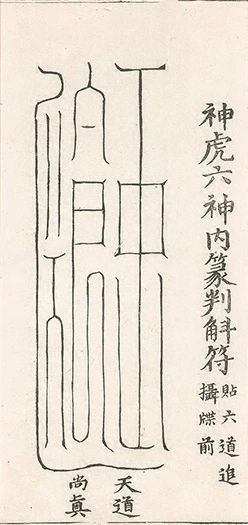 神虎六神内篆判斛符
貼六道追
攝牒前
天道
尚眞